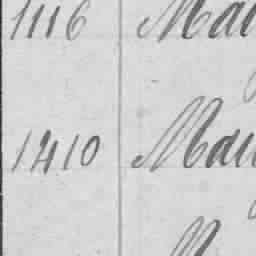 1116 Mau
1410 Mau
M